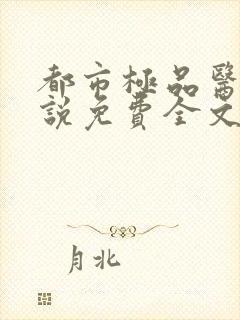 都市極品醫
說免費全文
月北